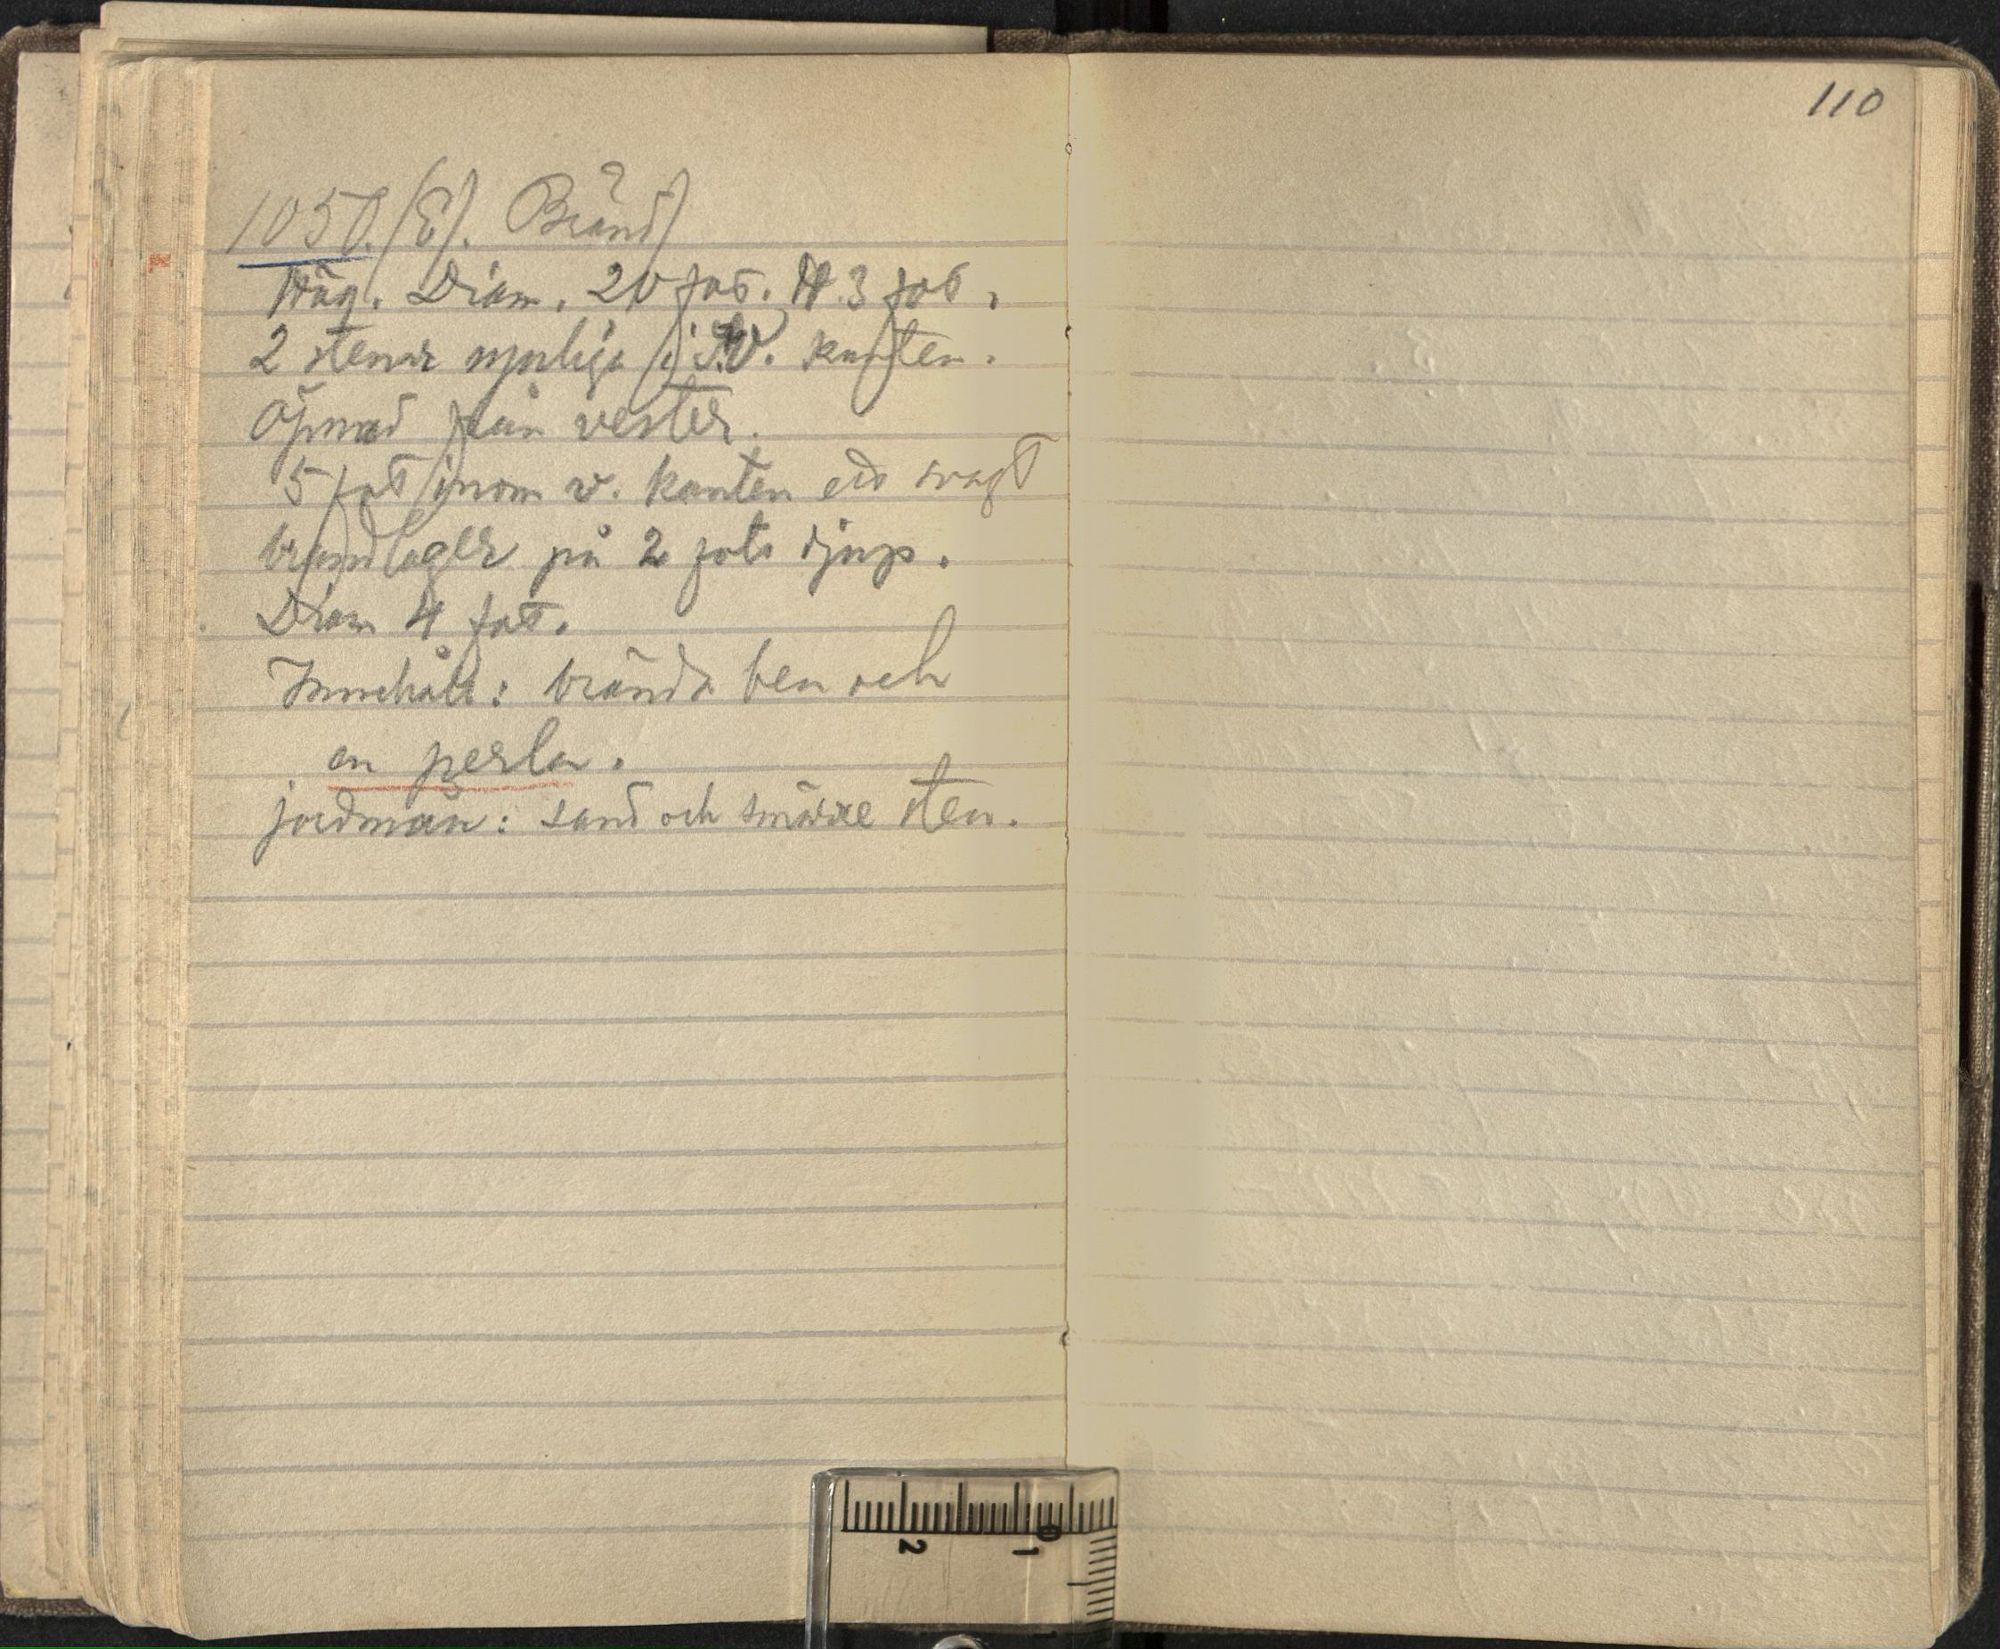 1050. (E). Bränd
Hög. Diam. 20 fot. H. 3 fot.
2 stenar synliga i S.V. kanten.
Öpnad från vester.
5 fot inom v. kanten ett svagt
brandlager på 2 fots djup.
Diam 4 fot.
Innehåll: brända ben och
en perla.
jordmån: sand och smärre sten.
110
2
1
0